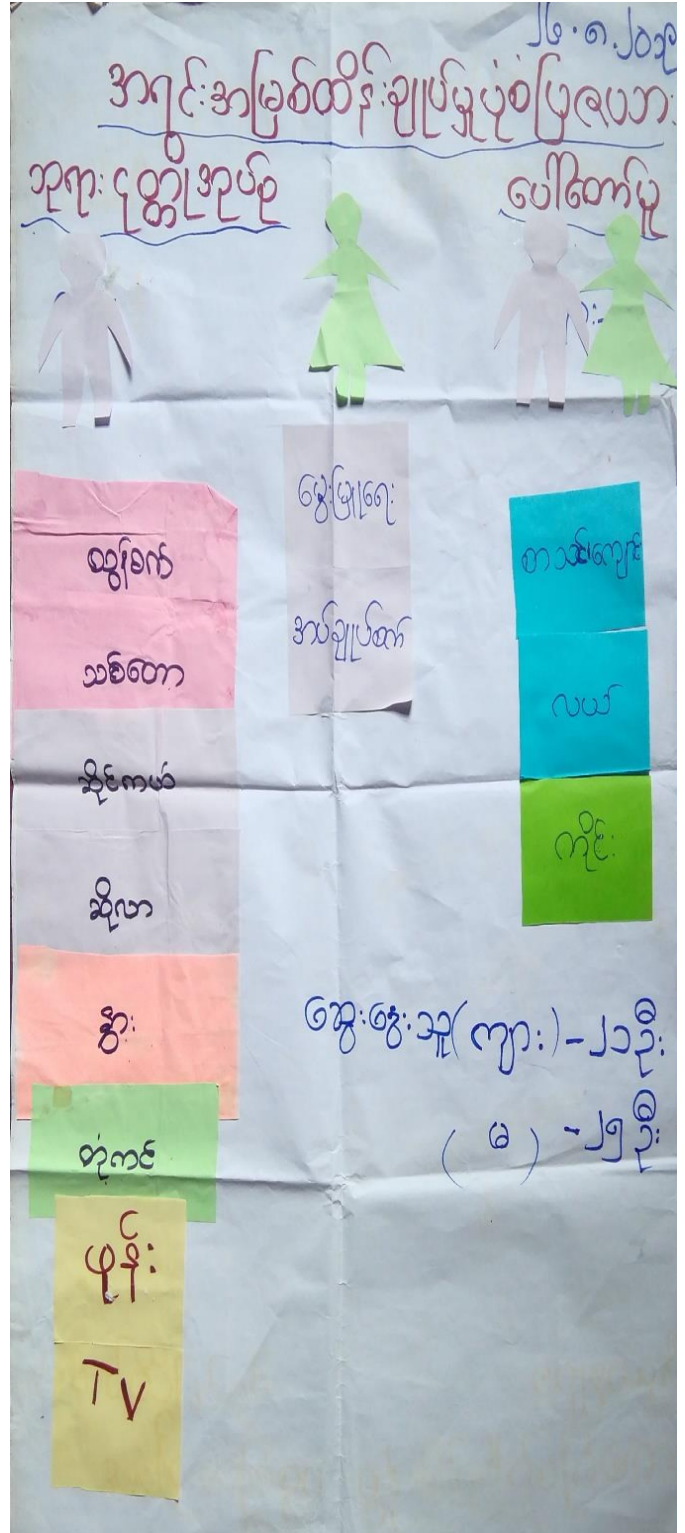 ၂၆.၈.၂၀၁၉
အရင်းအမြစ်ထိန်းချုပ်မှုပုံစံပြဇယား
ဘုရားငုတ္တိုအုပ်စု
ပေါ်တော်မူ
ထွန်စက်
သစ်တော
ဆိုင်ကယ်
ဆိုလာ
နွား
တုံကင်
ဖုန်း
TV
မွေးမြူရေး
အပ်ချုပ်စက်
စာသင်ကျောင်း
လယ်
ကိုင်း
ဆွေးနွေးသူ(ကျား)-၂၁ဦး
(မ) -၂၅ဦး